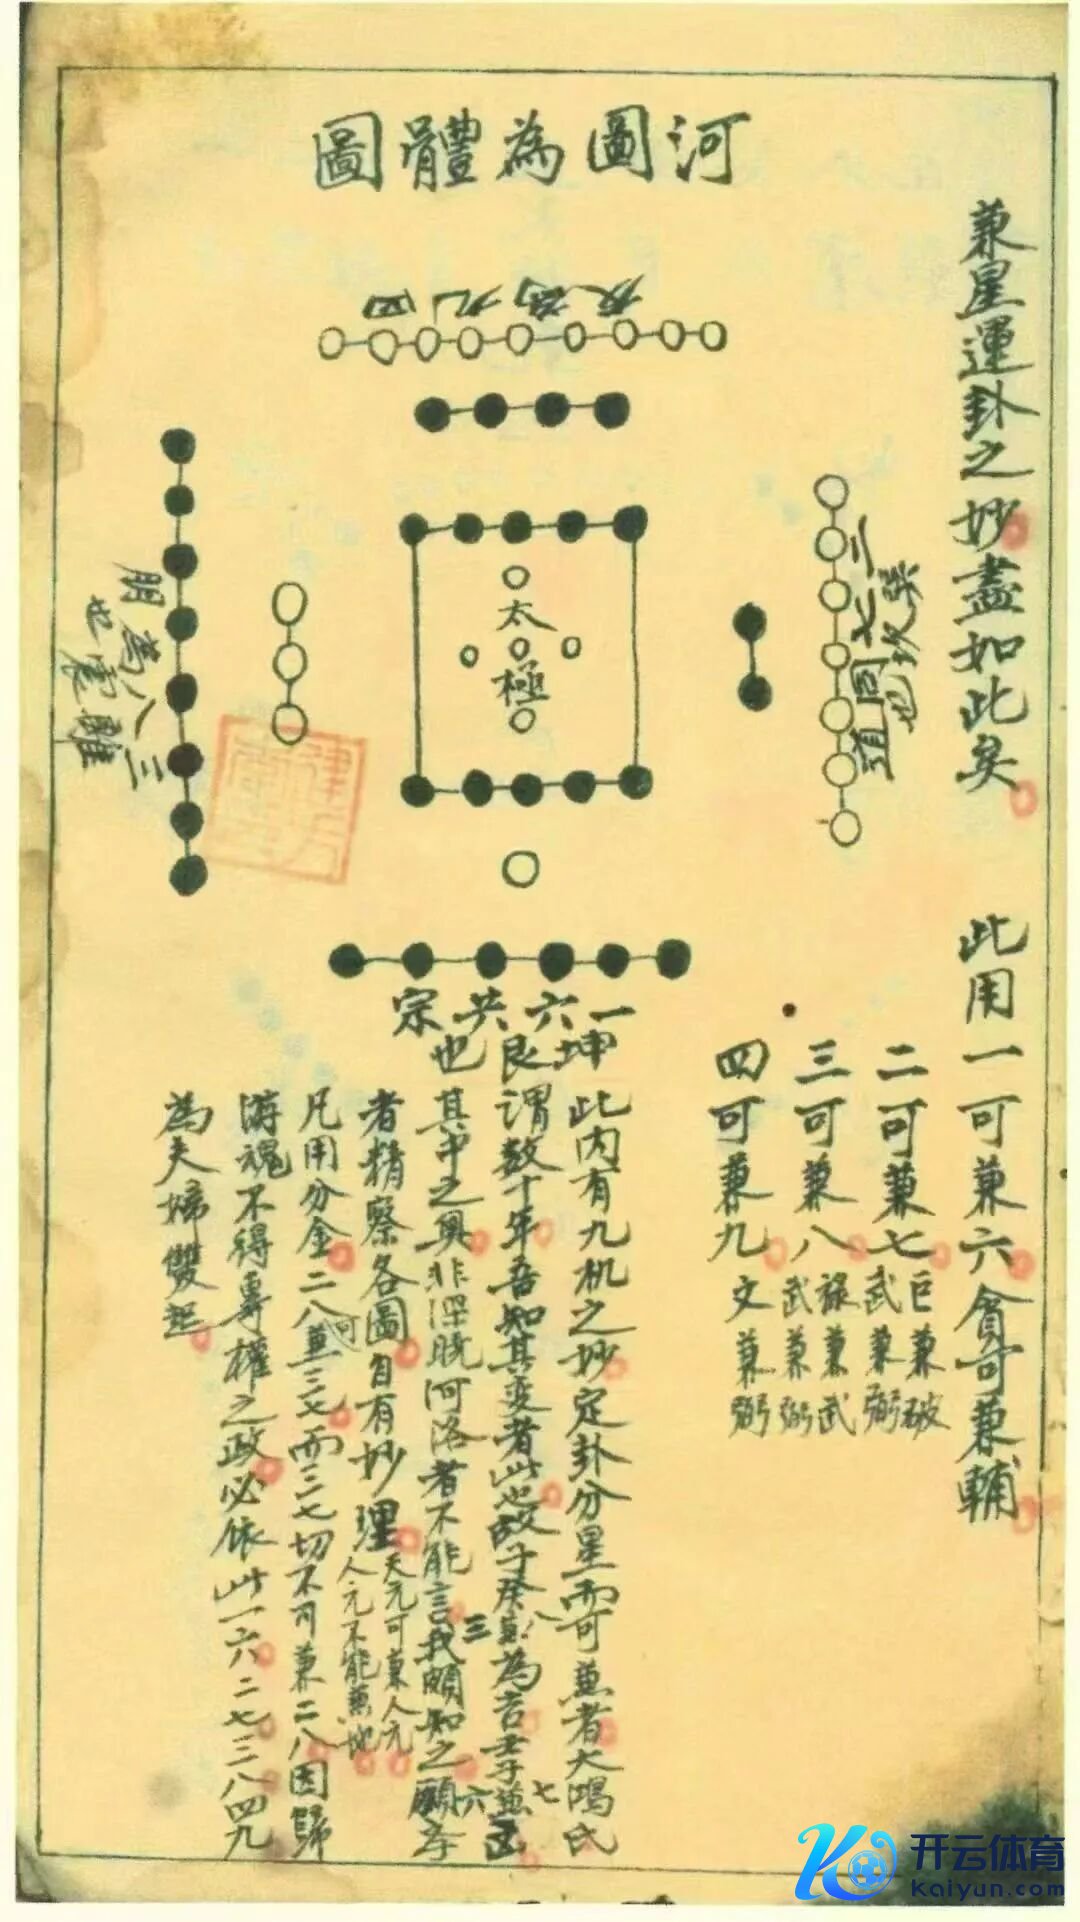 河圖為體圖
兼星運卦之妙盡如此矣
此用一可兼六貪可兼輔
二可兼七
巨兼破
武兼弼
三可兼八
祿兼武
武兼弼
四可兼九
文兼弼
四九為友
二七同道
三八為朋
也震離
太極
一六共宗
坤艮也
此内有九机之妙定卦分星而可兼者大鴻氏
謂数十年吾知其变者此也故子癸兼為吉壬子兼
其中之奥非深晓河洛者不能言我頗知之願学
者精察各圖自有妙理
天元可兼人元
人元不能兼地
凡用分金二八兼三七而三七切不可兼二八因歸
可
游魂不得專權之政必依此一六二七三八四九
為夫婦雙起
三
八
六
七
开云体育
Kaiyun.com